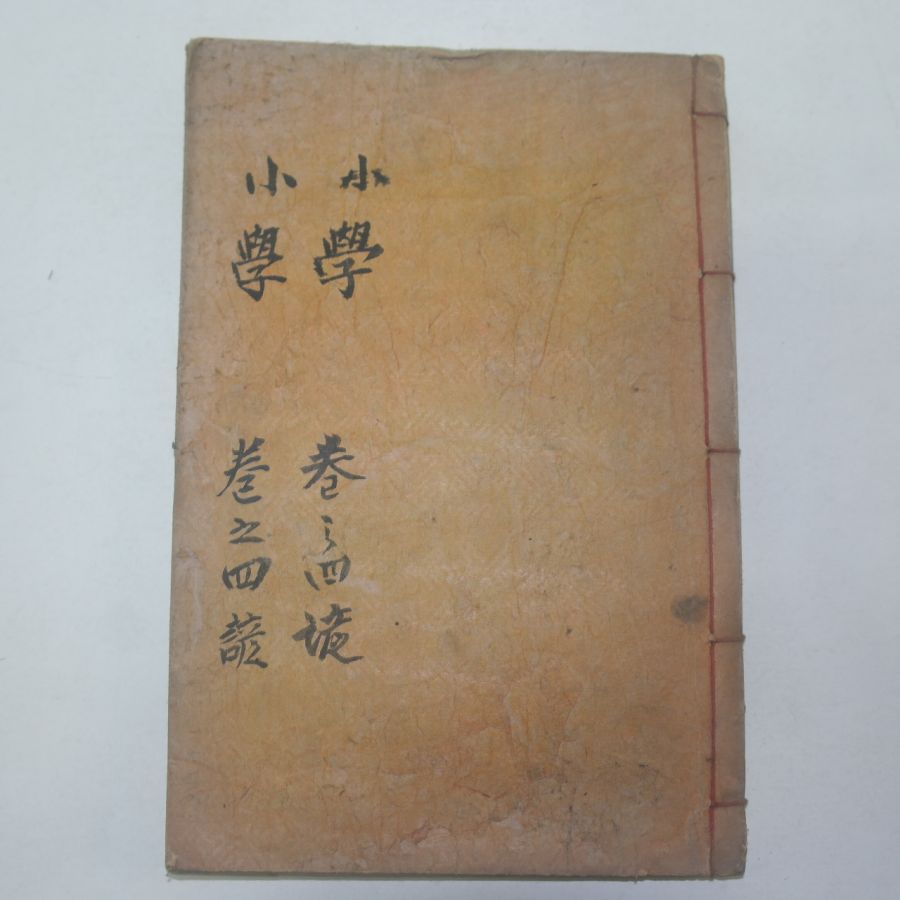 小學 卷之四諺
小學 卷之四諺